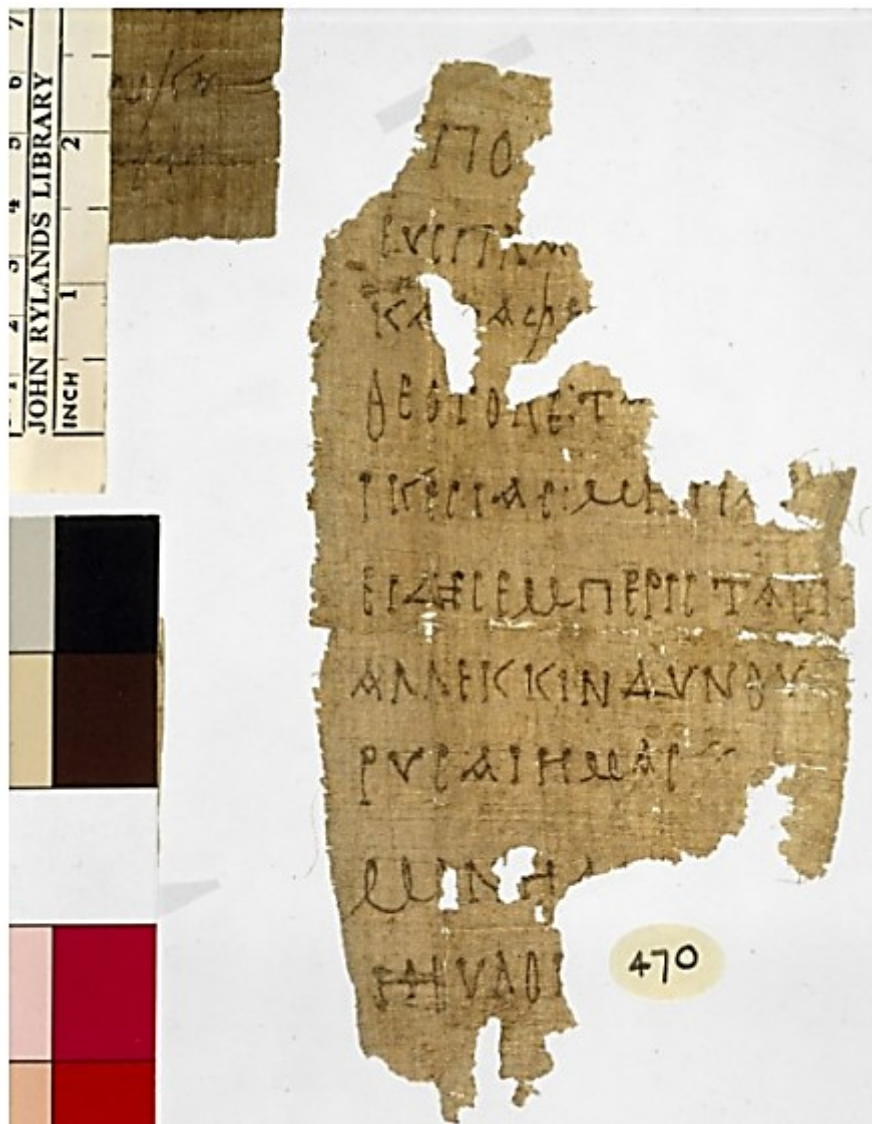 JOHN RYLANDS LIBRARY
INCH 1 2
1 2 3 4 5 6 7
ΠΟ
ΕΥCΠΛ
ΚΑΤΑΦΕ
ΘΕΟΤΟΚΕΤ
ΙΚΕCΙΑCΜΗΠΑ
ΕΙΔΗCΕΜΠΕΡΙCΤΑC
ΑΛΛΕΚΚΙΝΔΥΝΟΥ
ΡΥCΑΙΗΜΑC
ΜΟΝΗ
ΗΕΥΛΟΓ
470